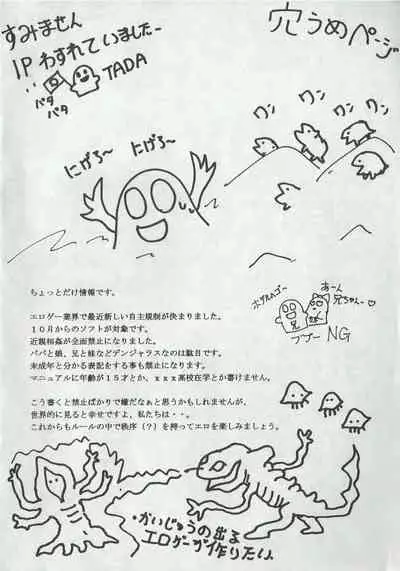 すみません
1Pわすれていました〜
パタ
パタ
TADA
穴うめページ
ワン
ワン
ワン
ワン
にげろ〜
にげろ〜
ちょっとだけ情報です。
エロゲー業界で最近新しい自主規制が決まりました。
10月からのソフトが対象です。
近親相姦が全面禁止になりました。
パパと娘、兄と妹などデンジャラスなのは駄目です。
未成年と分かる表記をする事も禁止になりました。
マニュアルに年齢が15才とか、xxx高校在学とか書けません。
こう書くと禁止ばかりで嫌だなぁと思うかもしれませんが、
世界的に見ると幸せですよ、私たちは・・。
これからもルールの中で秩序(?)を持ってエロを楽しみましょう。
あーん
兄ちゃ〜ん♡
兄
NG
かいじゅうの出る
エロゲーが作りたい